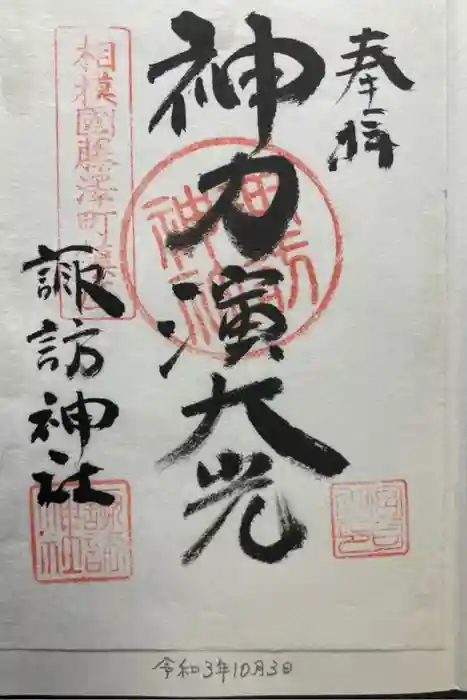 奉拝
神力演大光
諏訪神社
相模國藤澤町
諏訪神社
令和3年10月3日